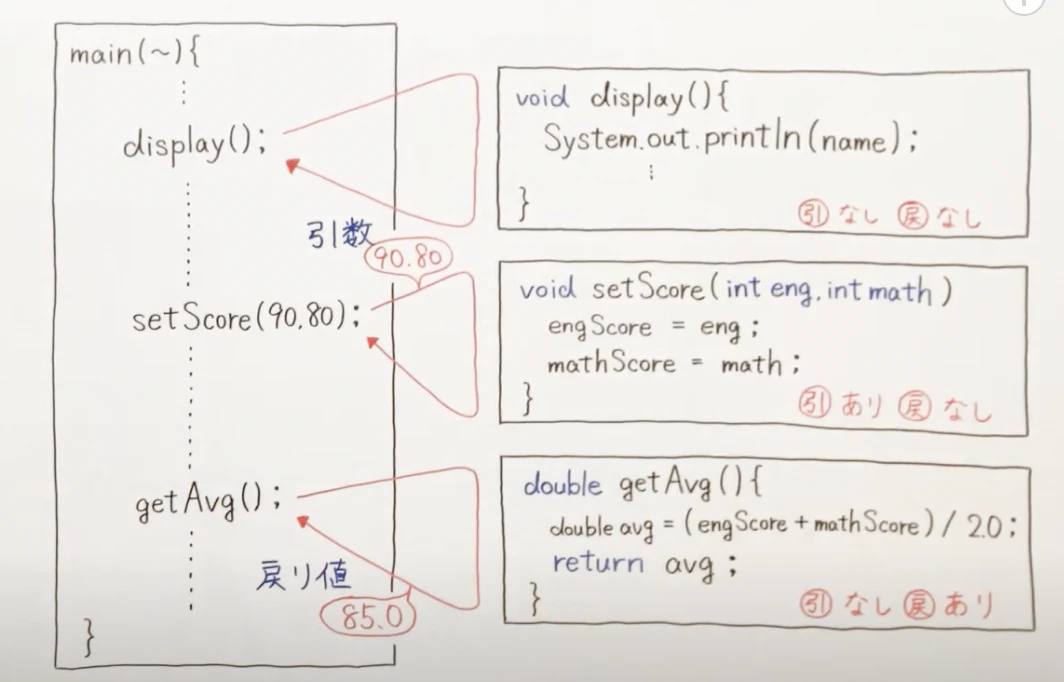 main(~){
display();
引数
90.80
setScore(90,80);
getAvg();
戻り値
85.0
}
void display(){
System.out.println(name);
}
引 なし 戻 なし
void setScore(int eng, int math)
engScore = eng;
mathScore = math;
}
引 あり 戻 なし
double getAvg(){
double avg = (engScore + mathScore) / 2.0;
return avg;
}
引 なし 戻 あり